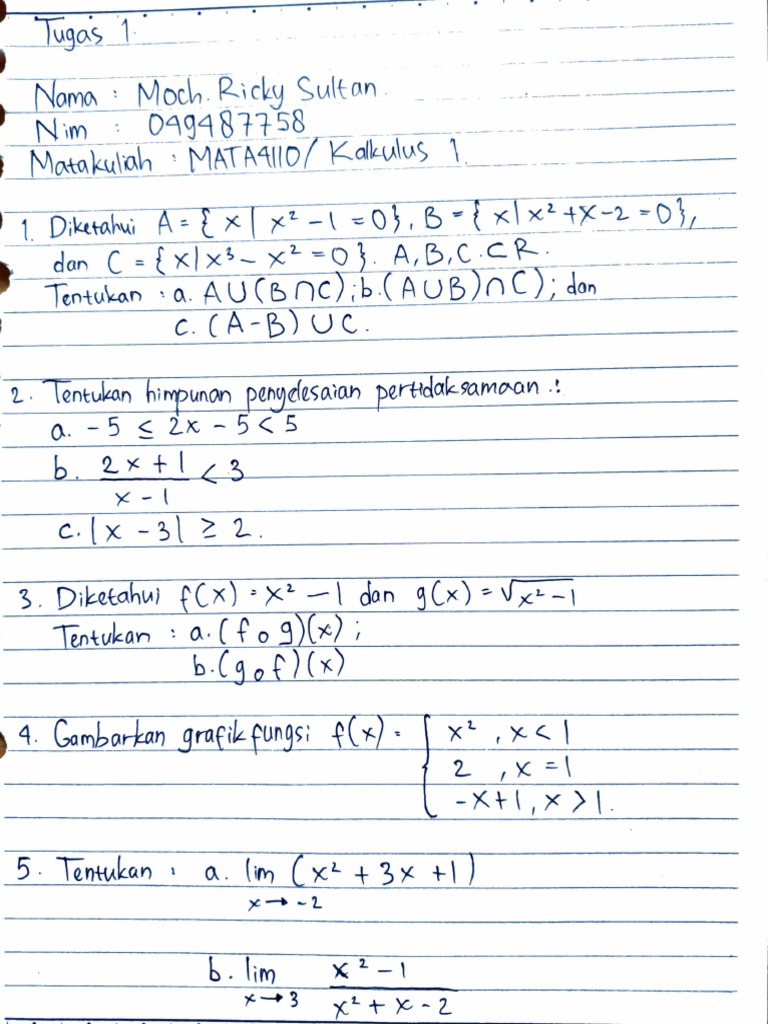 Tugas 1.
Nama : Moch. Ricky Sultan
Nim : 049487758
Matakuliah : MATA4110/ Kalkulus 1.
1. Diketahui A = { x | x² - 1 = 0 }, B = { x | x² + x - 2 = 0 },
dan C = { x | x³ - x² = 0 }. A, B, C. ⊂ R.
Tentukan : a. A ∪ (B ∩ C) ; b. (A ∪ B) ∩ C) ; dan
c. (A - B) ∪ C.
2. Tentukan himpunan penyelesaian pertidaksamaan .:
a. -5 ≤ 2x - 5 < 5
b. (2x + 1)/(x - 1) < 3
c. |x - 3| ≥ 2.
3. Diketahui f(x) = x² - 1 dan g(x) = √(x² - 1)
Tentukan : a. (f o g)(x) ;
b. (g o f)(x)
4. Gambarkan grafik fungsi f(x) = { x² , x < 1
2 , x = 1
-x + 1, x > 1.
5. Tentukan : a. lim (x² + 3x + 1)
x → -2
b. lim x² - 1
x → 3 x² + x - 2